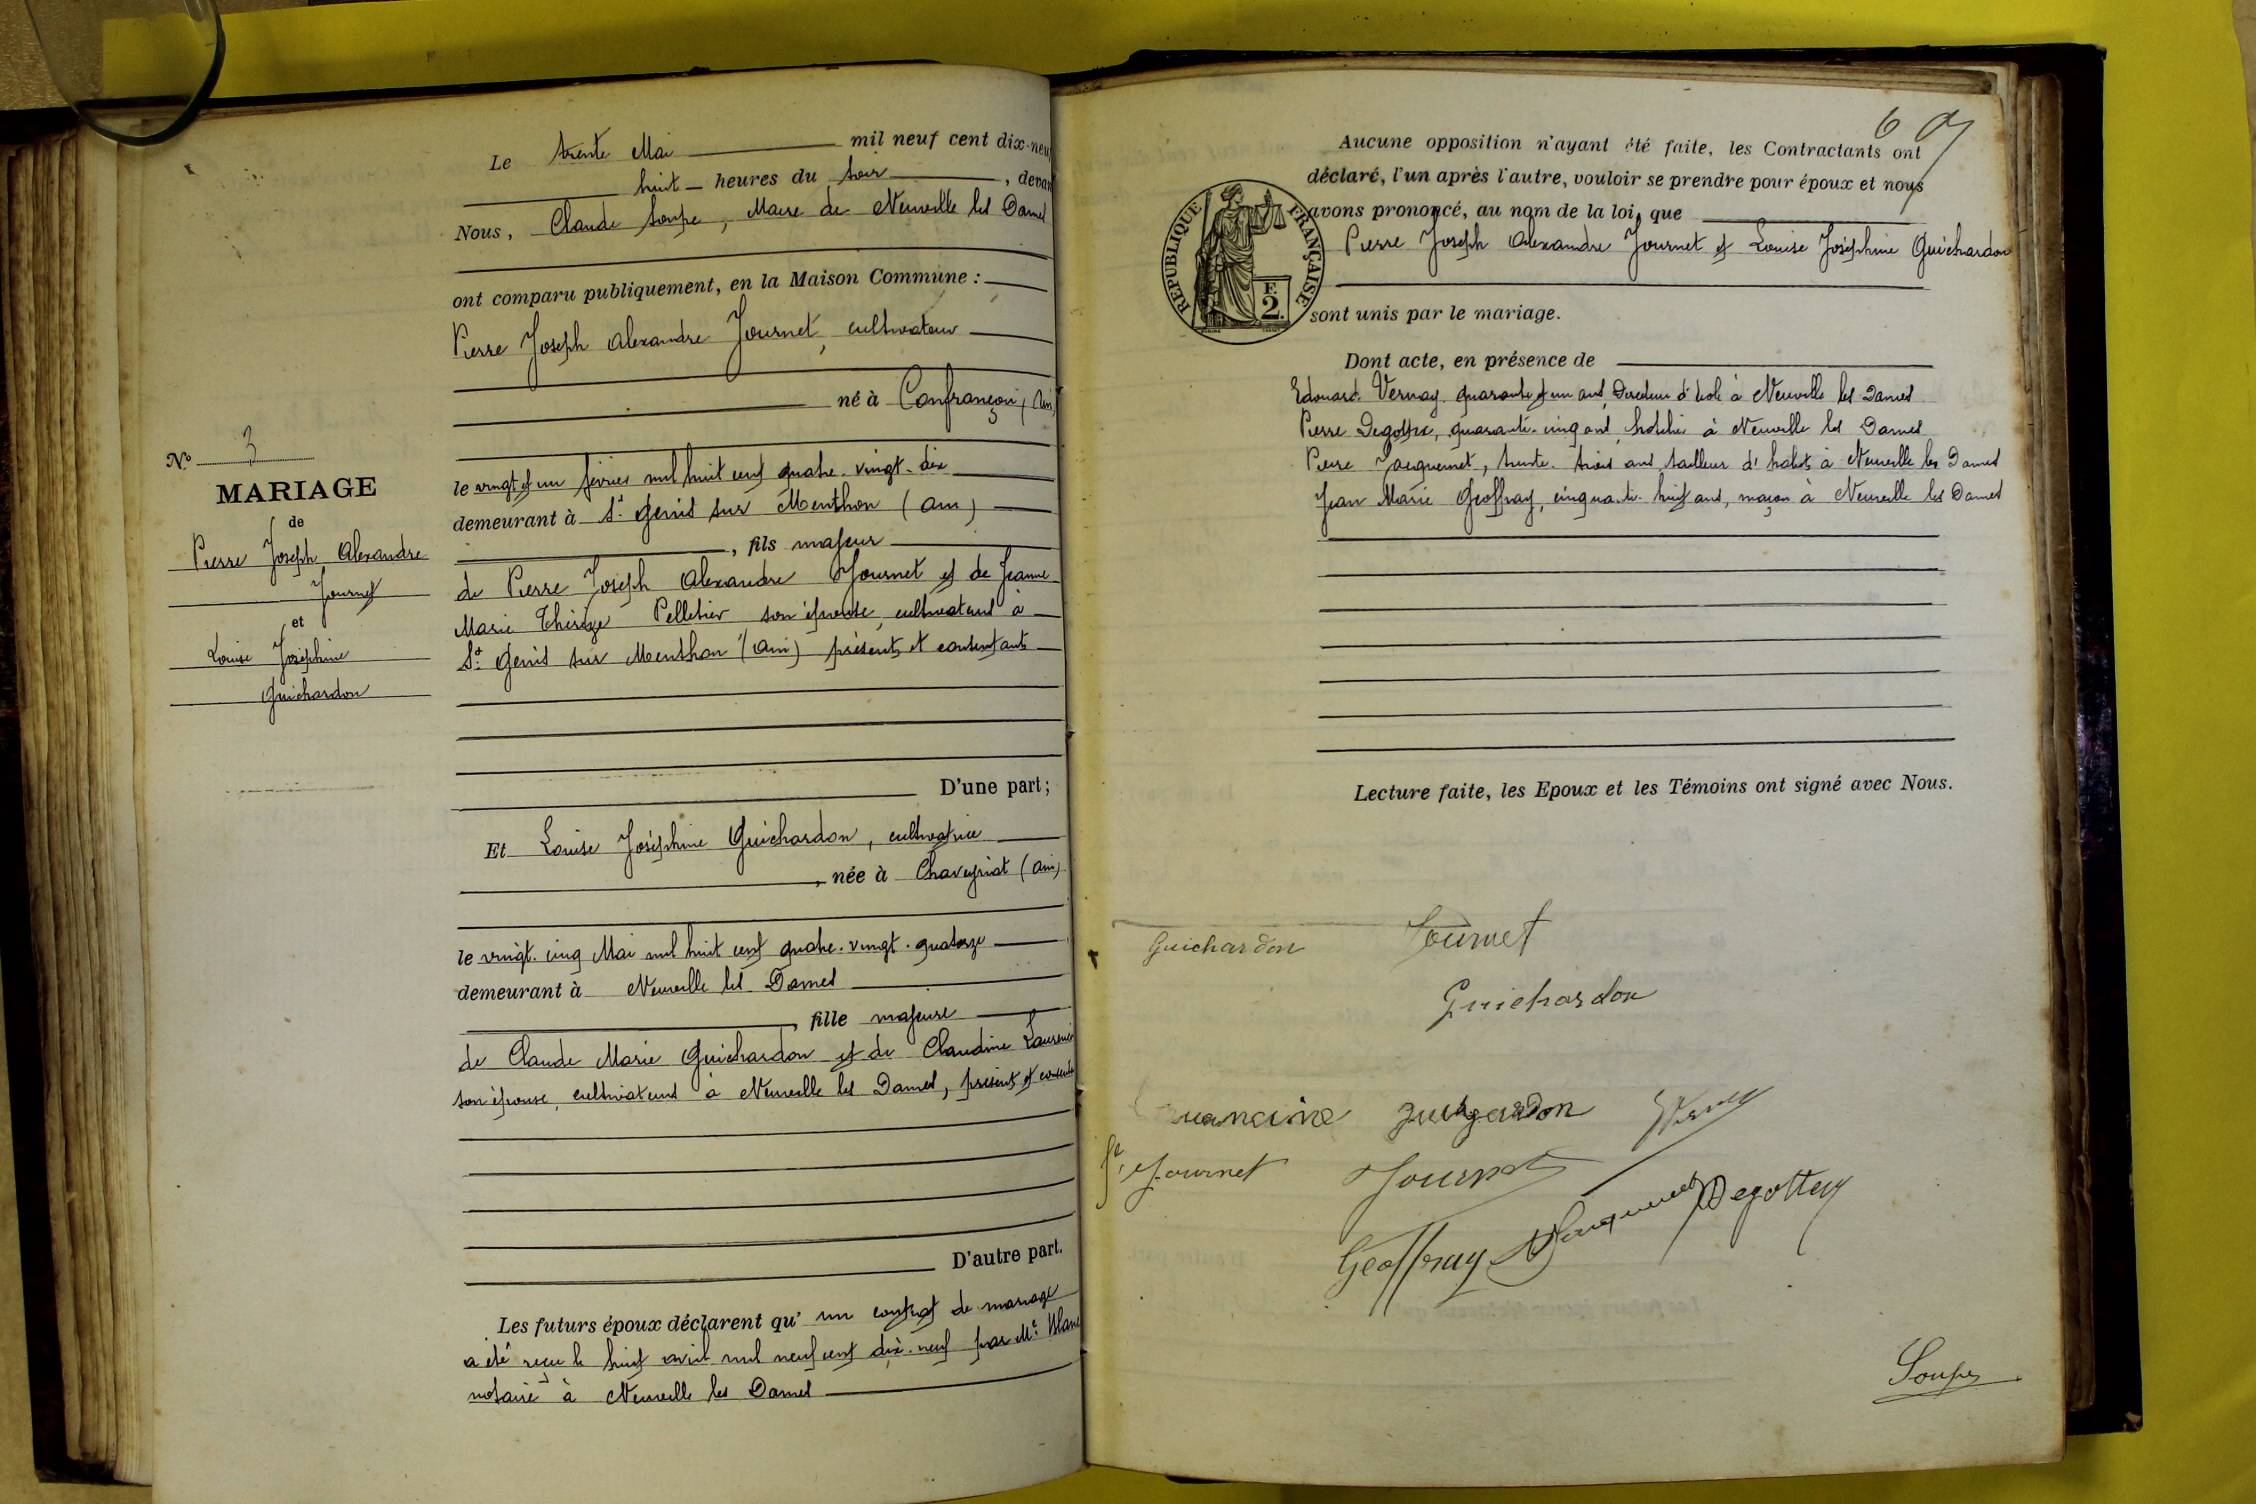 Le trente Mai mil neuf cent dix-neuf
huit heures du soir, devan
Nous, Claude Soupe, Maire de Neuville les Dames
ont comparu publiquement, en la Maison Commune :
Pierre Joseph Alexandre Journet, cultivateur
né à Confrançon, (Ain)
le vingt et un février mil huit cent quatre-vingt-dix
demeurant à St Genis sur Menthon (Ain)
, fils majeur
de Pierre Joseph Alexandre Journet et de Jeanne
Marie Thérèze Pelletier son épouse, cultivateurs à
St Genis sur Menthon (Ain) présents et consentants
D'une part;
Nº 3
MARIAGE
de
Pierre Joseph Alexandre
Journet
et
Louise Joséphine
Guichardon
Et Louise Joséphine Guichardon, cultivatrice
, née à Chaveyriat (Ain)
le vingt-cinq Mai mil huit cent quatre-vingt-quatorze
demeurant à Neuville les Dames
, fille majeure
de Claude Marie Guichardon et de Claudine
son épouse, cultivateurs à Neuville les Dames, présents et
D'autre part.
Les futurs époux déclarent qu'un contrat de mariage
a été reçu le huit avril mil neuf cent dix-neuf par Me Blanc
notaire à Neuville les Dames
6
Aucune opposition n'ayant été faite, les Contractants ont
déclaré, l'un après l'autre, vouloir se prendre pour époux et nous
avons prononcé, au nom de la loi, que
Pierre Joseph Alexandre Journet et Louise Joséphine Guichardon
sont unis par le mariage.
RÉPUBLIQUE FRANÇAISE
F.
2.
Dont acte, en présence de
Edouard Vernay quarante et un ans, Directeur d'école à Neuville les Dames
Pierre Degottex, quarante-cinq ans, hôtelier à Neuville les Dames
Pierre Jacquemet, trente-trois ans, tailleur d'habits à Neuville les Dames
Jean Marie Geoffray, cinquante-huit ans, maçon à Neuville les Dames
Lecture faite, les Epoux et les Témoins ont signé avec Nous.
Guichardon Journet
Guichardon
Journet Journet
Geoffray Jacquemet Degottex
Soupe